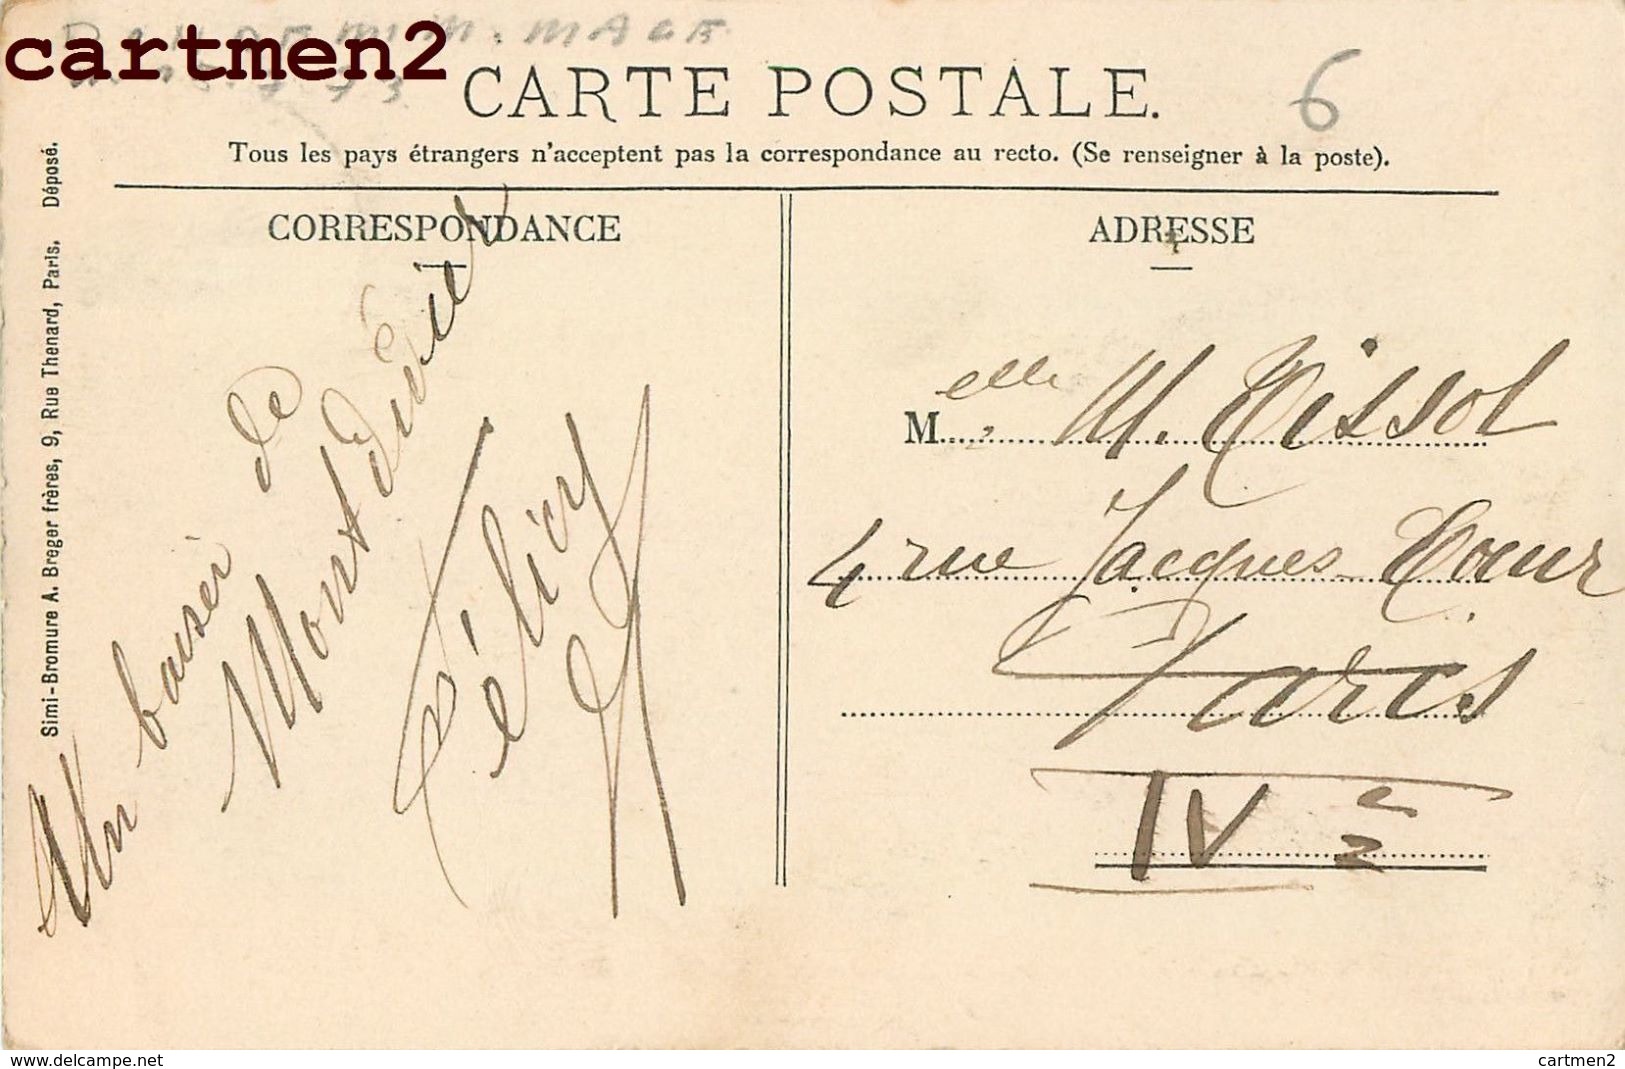 cartmen2
CARTE POSTALE.
Tous les pays étrangers n'acceptent pas la correspondance au recto. (Se renseigner à la poste).
6
Simi-Bromure A. Breger frères, 9, Rue Thenard, Paris. Déposé.
CORRESPONDANCE
Un baiser de
Montdidier
ADRESSE
Melle M. Tissot
4 rue Jacques Cœur
Paris
IVe
www.delcampe.net
cartmen2